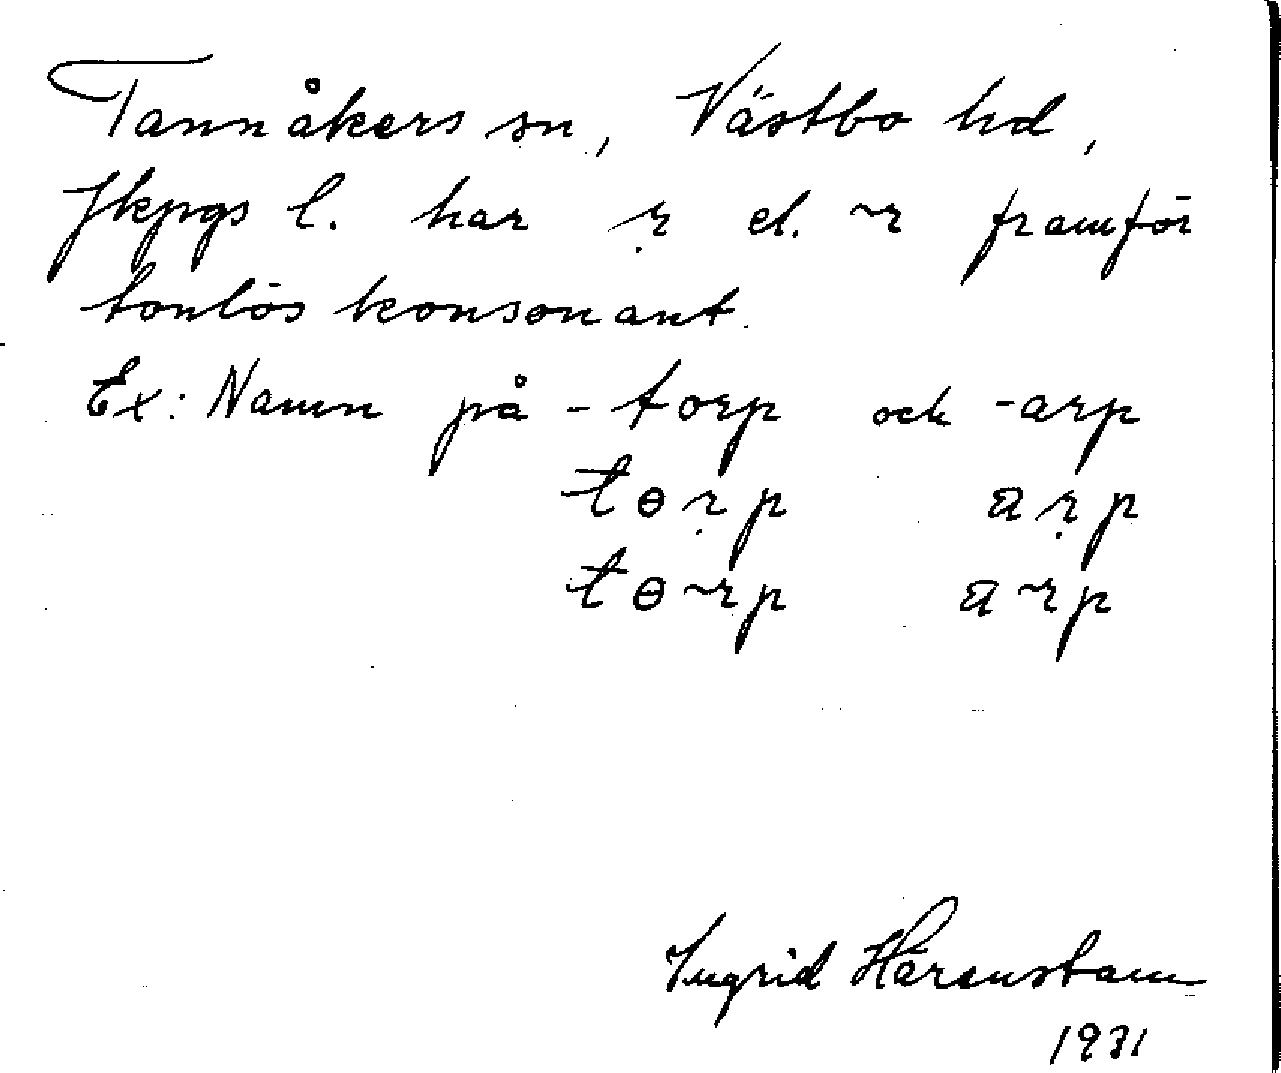 Tannåkers sn, Västbo hd,
Jkpgs l. har ṛ el. ~r framför
tonlös konsonant.
Ex: Namn på -torp och -arp
tɵṛp aṛp
tɵ~rp a~rp
Ingrid Härenstam
1931